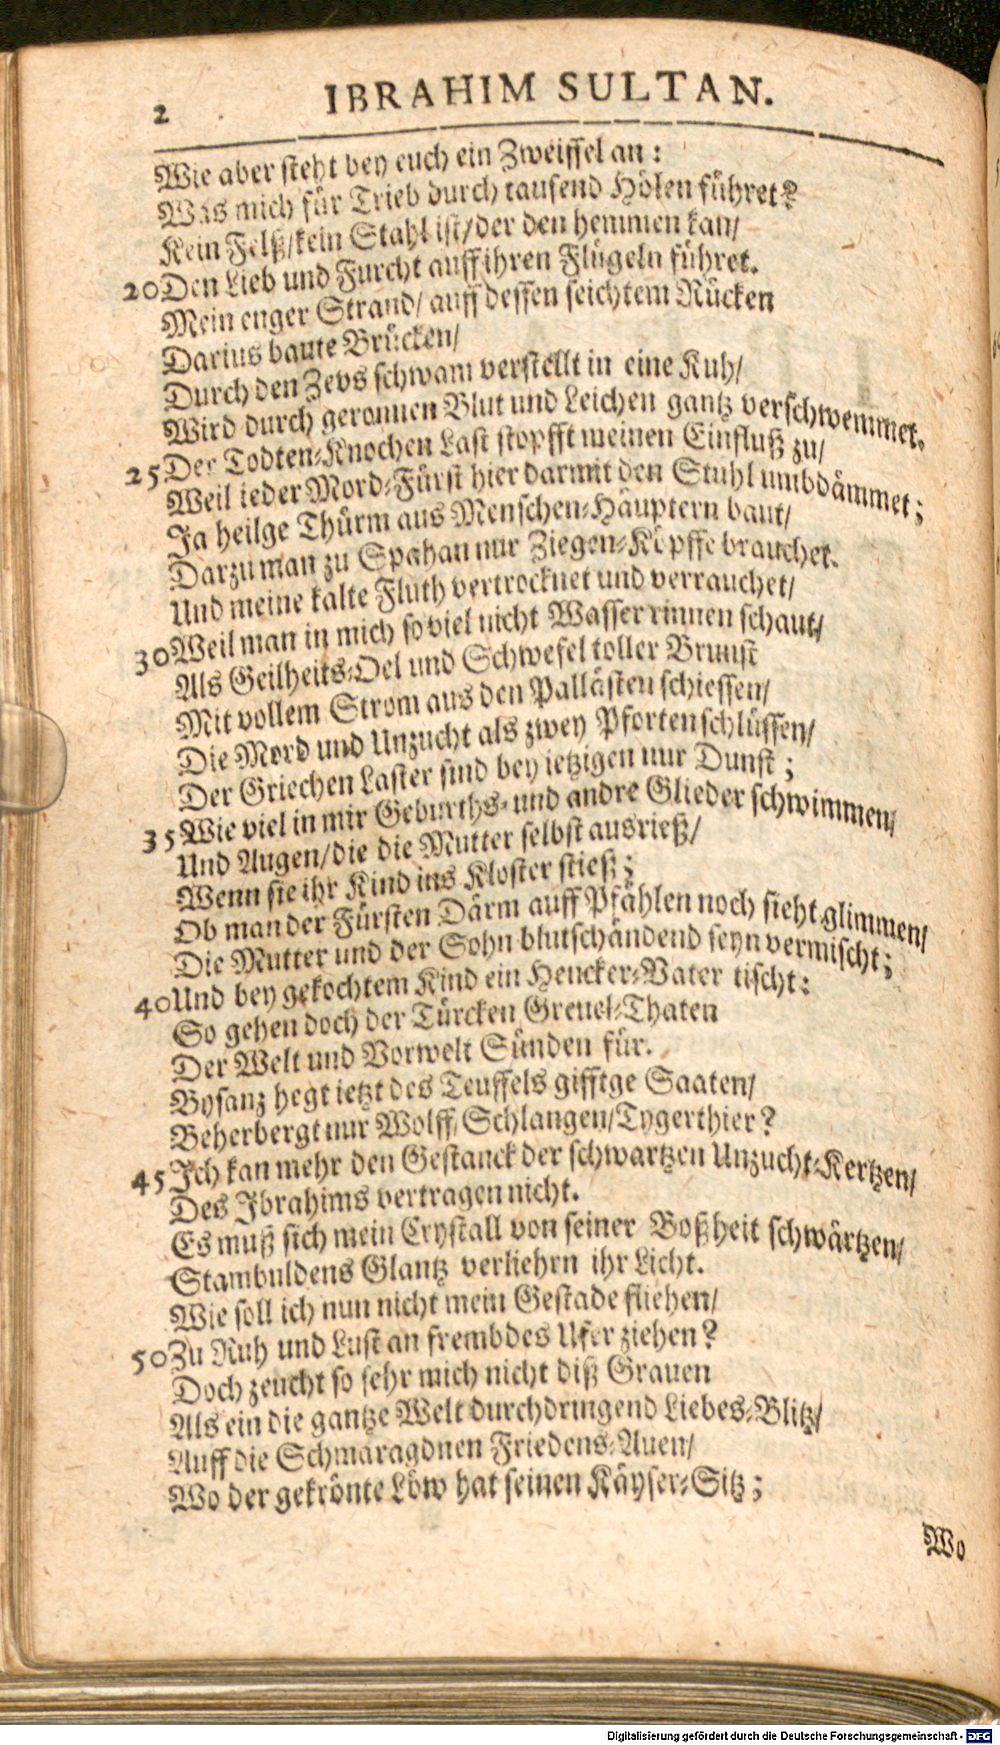 2 IBRAHIM SULTAN.
Wie aber steht bey euch ein Zweiffel an:
Was mich für Trieb durch tausend Hölen führet?
Kein Felß/kein Stahl ist/der den hemmen kan/
20 Den Lieb und Furcht auff ihren Flügeln führet.
Mein enger Strand/ auff dessen seichtem Rücken
Darius baute Brücken/
Durch den Zevs schwam verstellt in eine Kuh/
Wird durch geronnen Blut und Leichen gantz verschwemmet.
25 Der Todten-Knochen Last stopfft meinen Einfluß zu/
Weil ieder Mord-Fürst hier darmit den Stuhl umbdämmet;
Ja heilge Thürm aus Menschen-Häuptern baut/
Darzu man zu Spahan nur Ziegen-Köpffe brauchet.
Und meine kalte Fluth vertrocknet und verrauchet/
30 Weil man in mich so viel nicht Wasser rinnen schaut/
Als Geilheits-Oel und Schwefel toller Brunst
Mit vollem Strom aus den Pallästen schiessen/
Die Mord und Unzucht als zwey Pforten schlüssen/
Der Griechen Laster sind bey ietzigen nur Dunst;
35 Wie viel in mir Geburths- und andre Glieder schwimmen/
Und Augen/die die Mutter selbst ausrieß/
Wenn sie ihr Kind ins Kloster stieß;
Ob man der Fürsten Därm auff Pfählen noch sieht glimmen/
Die Mutter und der Sohn blutschändend seyn vermischt;
40 Und bey gekochtem Kind ein Hencker-Vater tischt:
So gehen doch der Türcken Greuel-Thaten
Der Welt und Vorwelt Sünden für.
Bysanz hegt ietzt des Teuffels gifftge Saaten/
Beherbergt nur Wolff/Schlangen/Tygerthier?
45 Ich kan mehr den Gestanck der schwartzen Unzucht-Kertzen/
Des Ibrahims vertragen nicht.
Es muß sich mein Crystall von seiner Boßheit schwärtzen/
Stambuldens Glantz verliehrn ihr Licht.
Wie soll ich nun nicht mein Gestade fliehen/
50 Zu Ruh und Lust an frembdes Ufer ziehen?
Doch zeucht so sehr mich nicht diß Grauen
Als ein die gantze Welt durchdringend Liebes-Blitz/
Auff die Schmaragdnen Friedens-Auen/
Wo der gekrönte Löw hat seinen Käyser-Sitz;
Wo
Digitalisierung gefördert durch die Deutsche Forschungsgemeinschaft - DFG